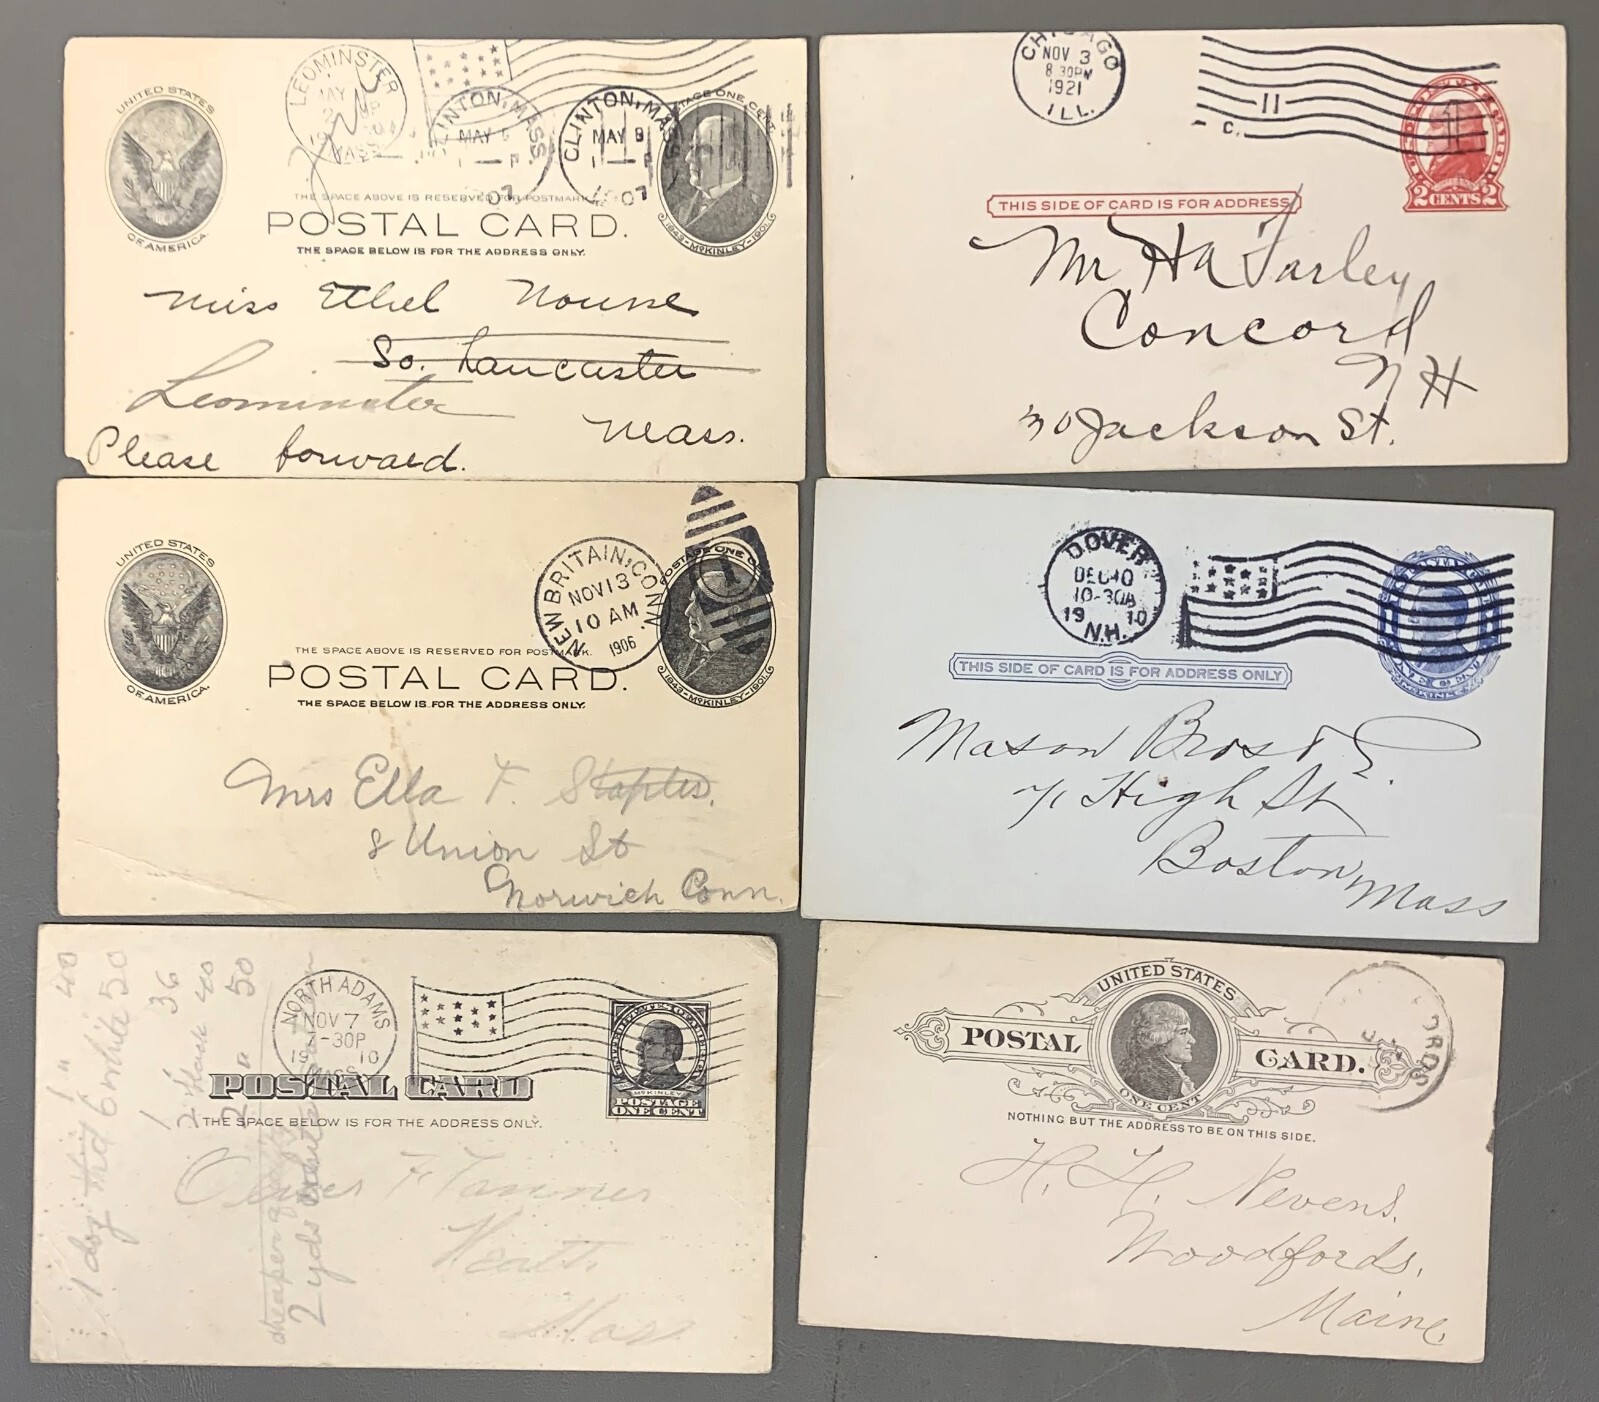 UNITED STATES
OF AMERICA.
LEOMINSTER
MAY
MASS
CLINTON, MASS.
MAY
1907
CLINTON, MASS.
MAY 8
1907
POSTAGE ONE CENT
1843-McKINLEY-1901
THE SPACE ABOVE IS RESERVED FOR POSTMARK.
POSTAL CARD.
THE SPACE BELOW IS FOR THE ADDRESS ONLY.
Miss Ethel Nourse
So. Lancaster
Leominster
Mass.
Please forward.
CHICAGO
NOV 3
8 30PM
1921
ILL.
11
C.
1
2 CENTS 2
THIS SIDE OF CARD IS FOR ADDRESS
Mr H A Farley
Concord
N H
30 Jackson St.
UNITED STATES
OF AMERICA.
NEW BRITAIN, CONN.
NOV 13
10 AM
1906
1
POSTAGE ONE
1843-McKINLEY-1901
THE SPACE ABOVE IS RESERVED FOR POSTMARK.
POSTAL CARD.
THE SPACE BELOW IS FOR THE ADDRESS ONLY.
Mrs Ella F. Staples.
8 Union St
Norwich Conn.
DOVER
DEC 10
10-30A
1910
N.H.
THIS SIDE OF CARD IS FOR ADDRESS ONLY
Mason Bros &
71 High St
Boston
Mass
1 doz
6 white 50
1 " 40
1 36
2 black 40
2 " 50
cheaper
2 yds
NORTH ADAMS
NOV 7
-30P
1910
MASS.
McKINLEY
POSTAGE
ONE CENT
POSTAL CARD
THE SPACE BELOW IS FOR THE ADDRESS ONLY.
Oliver F Tanner
Heath
Mass
UNITED STATES
POSTAL CARD.
ONE CENT
NOTHING BUT THE ADDRESS TO BE ON THIS SIDE.
H. H. Nevens.
Woodfords,
Maine.